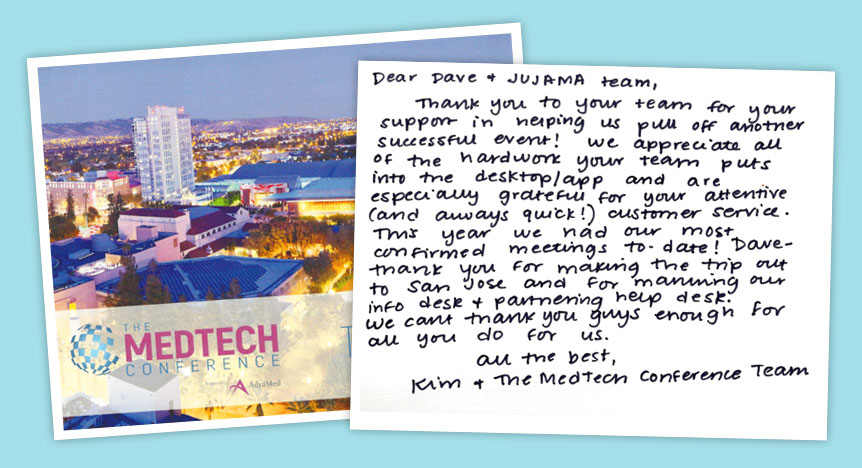 THE
MEDTECH
CONFERENCE
Powered by AdvaMed
T
Dear Dave + JUJAMA team,
Thank you to your team for your
support in helping us pull off another
successful event! We appreciate all
of the hardwork your team puts
into the desktop/app and are
especially grateful for your attentive
(and always quick!) customer service.
This year we had our most
confirmed meetings to-date! Dave-
thank you for making the trip out
to San Jose and for manning our
info desk + partnering help desk.
We cant thank you guys enough for
all you do for us.
All the best,
Kim + The MedTech Conference Team